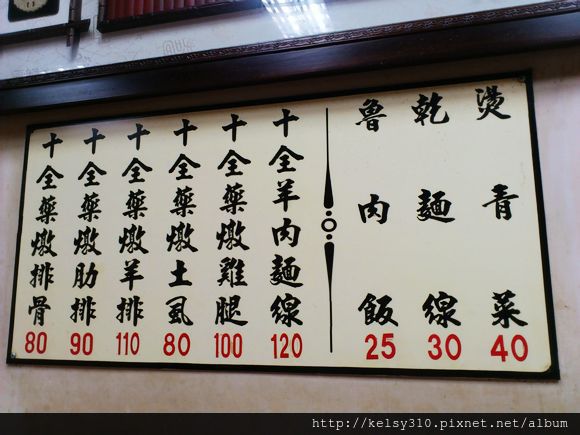 燙青菜 40
乾麵線 30
魯肉飯 25
十全羊肉麵線 120
十全藥燉雞腿 100
十全藥燉土虱 80
十全藥燉羊排 110
十全藥燉肋排 90
十全藥燉排骨 80
http://kelsy310.pixnet.net/album